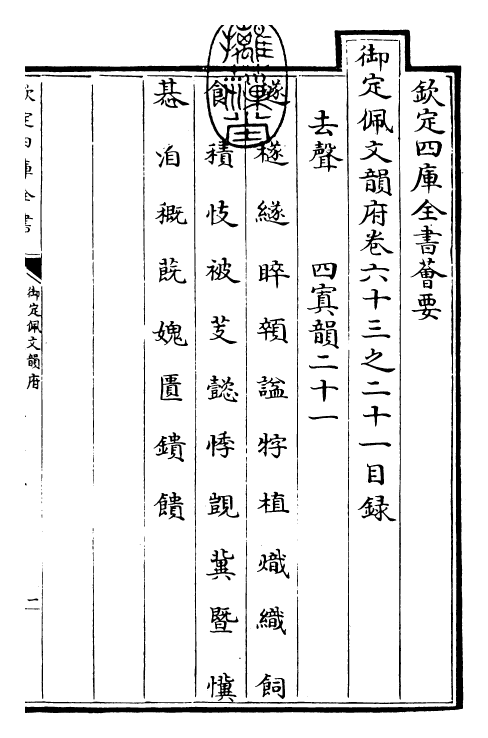 欽定四庫全書薈要
御定佩文韻府卷六十三之二十一目録
去聲 四寘韻二十一
璲 檖 繸 睟 顇 謚 牸 植 熾 織 飼
飤 積 忮 被 芰 懿 悸 覬 冀 暨 懻
惎 洎 穊 蔇 媿 匱 鐀 饋
欽定四庫全書
御定佩文韻府
一